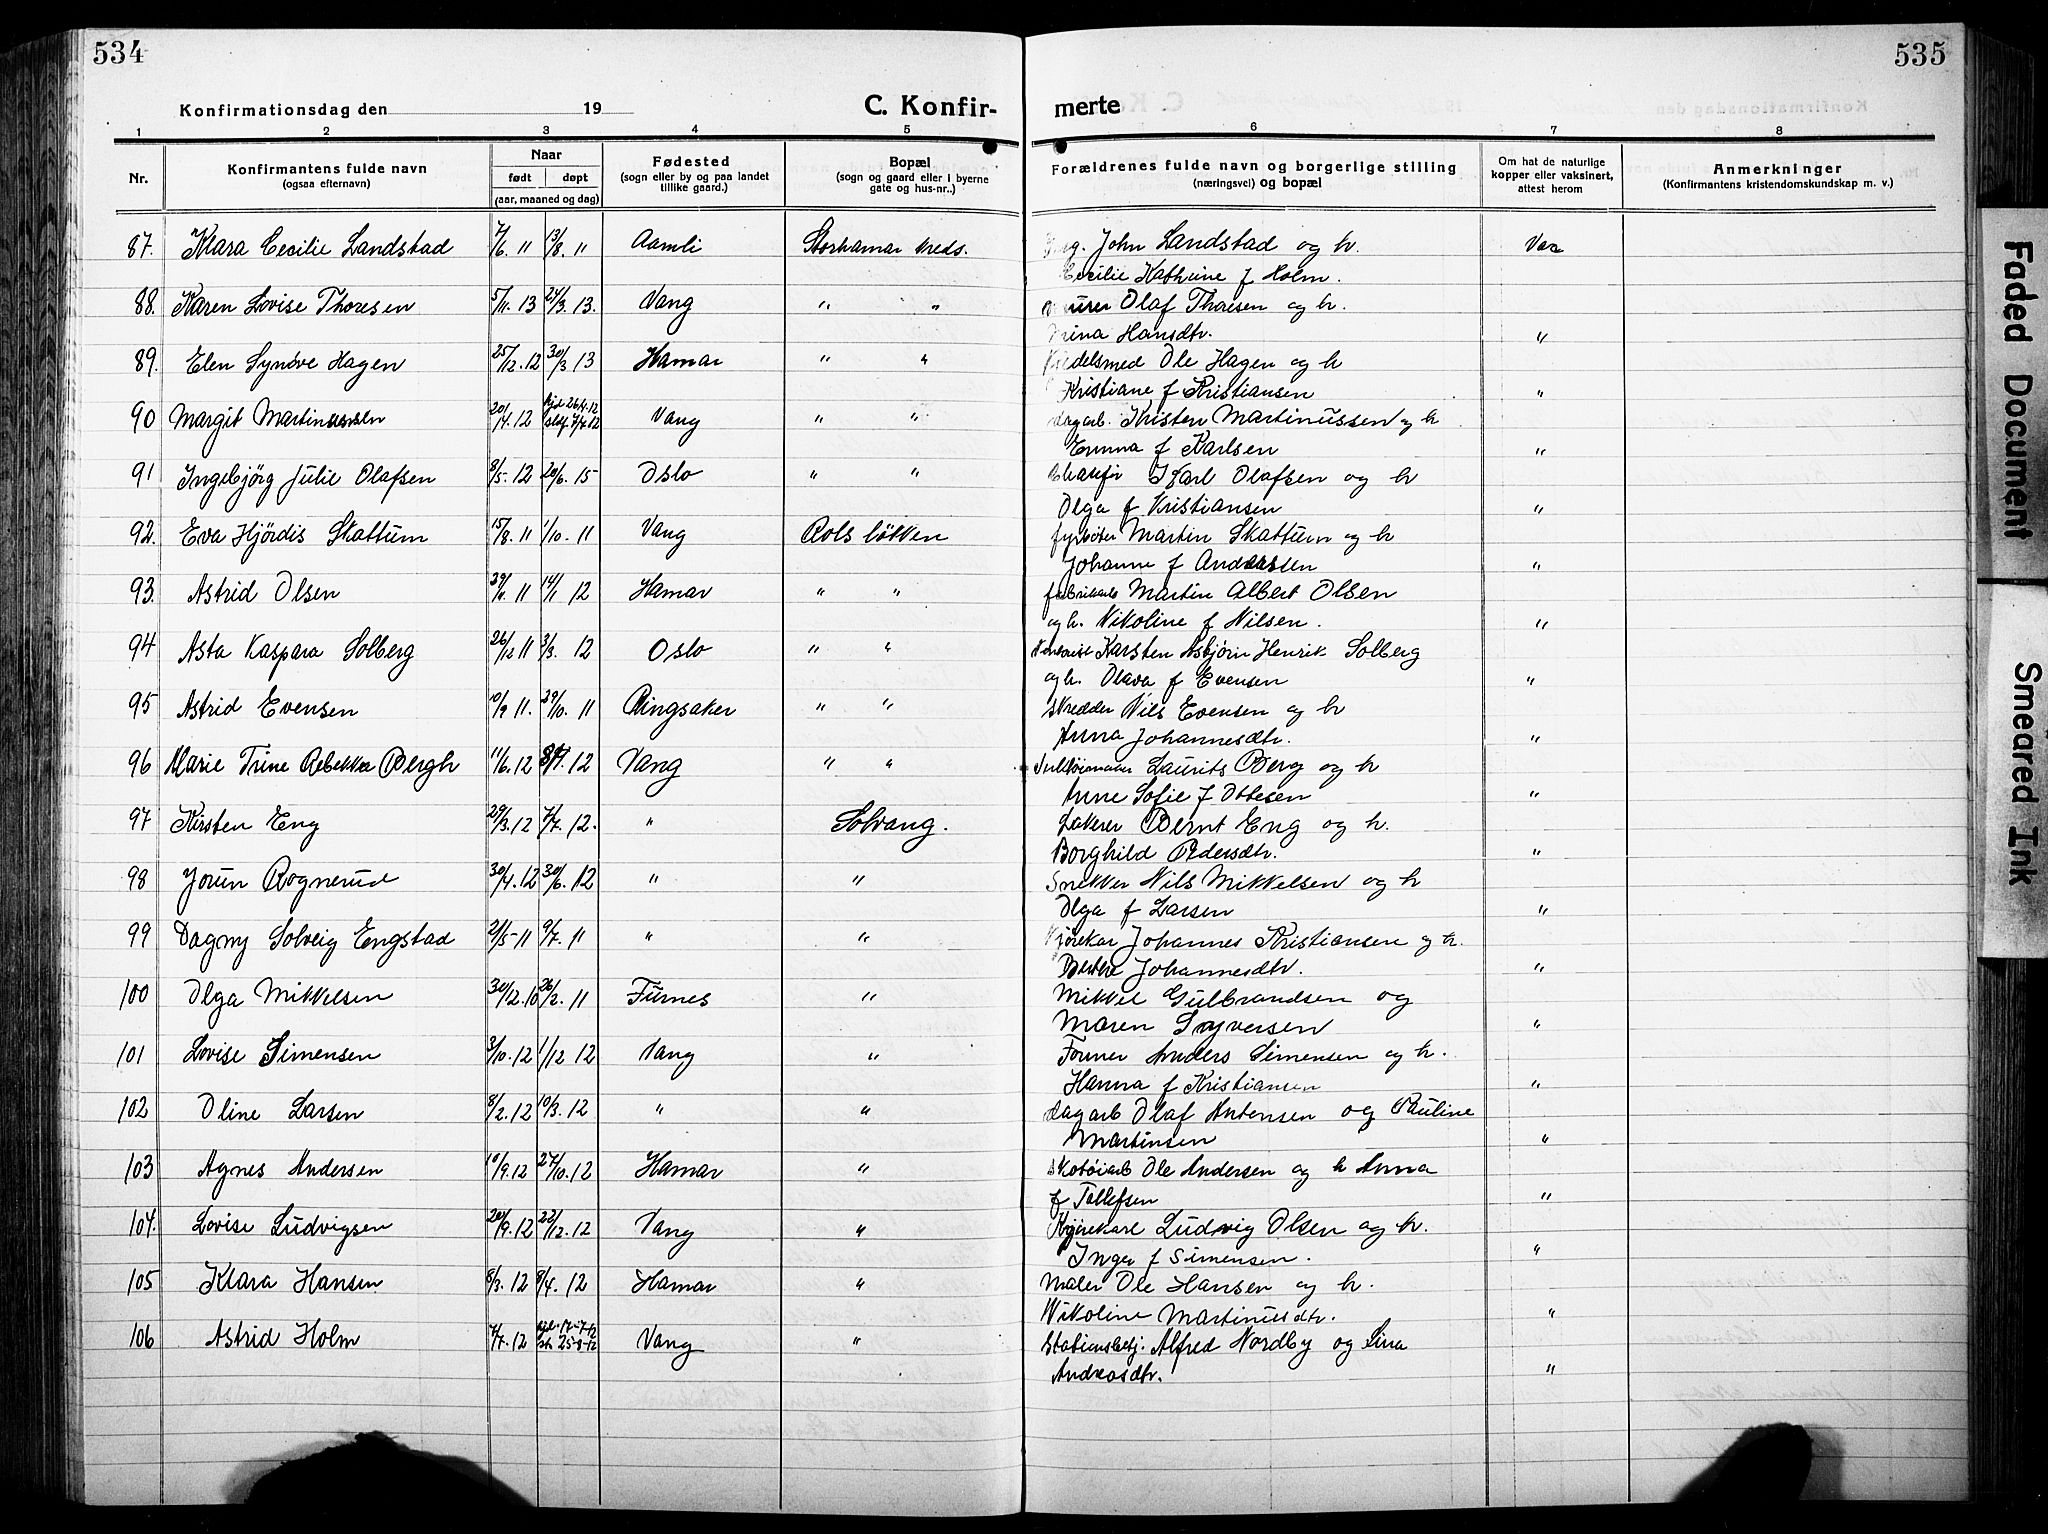 534
535
Konfirmationsdag den 19
C. Konfir-
merte
1 2 3 4 5 6 7 8
Nr.
Konfirmantens fulde navn
(ogsaa efternavn)
Naar
født døpt
(aar, maaned og dag)
Fødested
(sogn eller by og paa landet
tillike gaard.)
Bopæl
(sogn og gaard eller i byerne
gate og hus-nr..)
Forældrenes fulde navn og borgerlige stilling
(næringsvei) og bopæl
Om hat de naturlige
kopper eller vaksinert,
attest herom
Anmerkninger
(Konfirmantens kristendomskundskap m. v.)
87. Klara Cecilie Landstad 7/6. 11 13/8. 11 Aamli Storhamar neds. John Landstad og h. Vac
Cecilie Kathrine f Holm.
88. Karen Lovise Thoresen 5/11. 13 24/3. 13. Vang " " murer Olaf Thoresen og h.
Trina Hansdtr. "
89. Elen Synöve Hagen 25/12. 12 30/3 13 Hamar " " Ole Hagen og h
Kristiane f Kristiansen "
90 Margit Martinussen 20/4. 12 Vang " " dagarb. Kristen Martinussen og h
Emma f Karlsen "
91 Ingebjörg Julie Olafsen 8/5. 12 20/6. 15 Oslo " " Chaufør Karl Olafsen og h
Olga f Kristiansen "
92. Eva Hjördis Skattum 15/8. 11 1/10. 11 Vang Rolsløkken fyrbøter Martin Skattum og h
Johanne f Anderssen "
93. Astrid Olsen 11 14/1 12 Hamar " " fabrikarb Martin Albert Olsen
og h. Nikoline f Nilsen. "
94 Asta Kaspara Solberg 26/12 11 3/3. 12 Oslo " " Karsten Asbjørn Henrik Solberg
og h. Olava f Evensen "
95 Astrid Evensen 10/9 11. 29/10. 11 Ringsaker " " skredder Nils Evensen og h
Anna Johannesdtr. "
96 Marie Trine Rebekka Bergh 11/6. 12 12 Vang " " Laurits Berg og h
Anne Sofie f Ottesen "
97 Kirsten Eng 29/3. 12 7/7. 12. " Solvang. Lakerer Bernt Eng og h.
Borghild Pedersdtr. "
98 Jorun Rognerud 30/4. 12 30/6. 12 " " Snekker Nils Mikkelsen og h
Olga f Larsen "
99 Dagny Solveig Engstad 21/5-11 9/7. 11 " " Kjørekar Johannes Kristiansen og h.
Berthe Johannesdtr. "
100 Olga Mikkelsen 30/12. 10 26/2. 11 Furnes " Mikkel Gulbrandsen og
Maren Syversen "
101 Lovise Simensen 3/10. 12 1/12 12 Vang " Former Anders Simensen og h.
Hanna f Kristiansen "
102 Oline Larsen 8/2. 12 10/3. 12 " " dagarb Olaf Antensen og Pauline
Martinsen "
103 Agnes Andersen 10/9. 12 27/10. 12 Hamar " skotøiarb Ole Andersen og h Anna
f Tollefsen "
104. Lovise Ludvigsen 20/9. 12 22/12. 12 Vang " Kjørekarl Ludvig Olsen og h.
Inger f Simensen. "
105 Klara Hansen 8/3. 12 8/4. 12 Hamar " Maler Ole Hansen og h.
Nikoline Martinusdtr. "
106 Astrid Holm 7/7. 12 hjd. 17-7-12 st. 25-8-12 Vang " Stationsbetj. Alfred Nordby og Lina
Andreasdtr. "
Faded Document
Smeared Ink